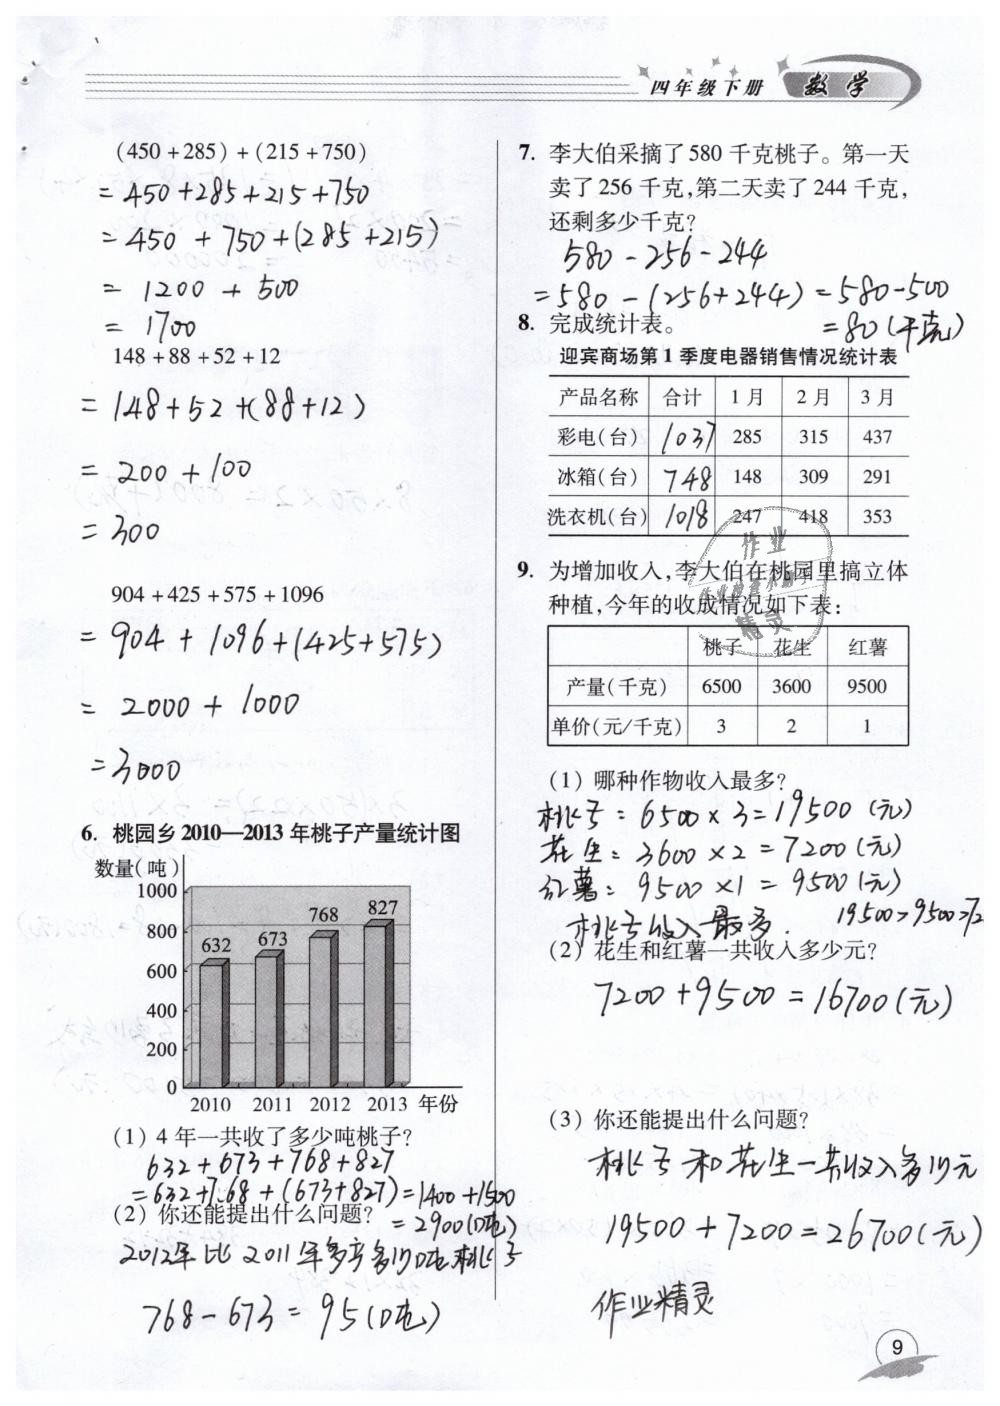 四年级下册 数学
(450+285)+(215+750)
=450+285+215+750
=450+750+(285+215)
=1200+500
=1700
148+88+52+12
=148+52+(88+12)
=200+100
=300
904+425+575+1096
=904+1096+(425+575)
=2000+1000
=3000
6. 桃园乡2010—2013年桃子产量统计图
数量(吨)
1000
800
600
400
200
0
632 673 768 827
2010 2011 2012 2013 年份
(1) 4年一共收了多少吨桃子?
632+673+768+827
=632+768+(673+827)=1400+1500
=2900(吨)
(2) 你还能提出什么问题?
2012年比2011年多产多少吨桃子
768-673=95(吨)
7. 李大伯采摘了580千克桃子。第一天
卖了256千克,第二天卖了244千克,
还剩多少千克?
580-256-244
=580-(256+244)=580-500
=80(千克)
8. 完成统计表。
迎宾商场第1季度电器销售情况统计表
产品名称 合计 1月 2月 3月
彩电(台) 1037 285 315 437
冰箱(台) 748 148 309 291
洗衣机(台) 1018 247 418 353
作业
精灵
9. 为增加收入,李大伯在桃园里搞立体
种植,今年的收成情况如下表:
桃子 花生 红薯
产量(千克) 6500 3600 9500
单价(元/千克) 3 2 1
(1) 哪种作物收入最多?
桃子:6500×3=19500(元)
花生:3600×2=7200(元)
红薯:9500×1=9500(元)
19500>9500>72
桃子收入最多.
(2) 花生和红薯一共收入多少元?
7200+9500=16700(元)
(3) 你还能提出什么问题?
桃子和花生一共收入多少元
19500+7200=26700(元)
作业精灵
9